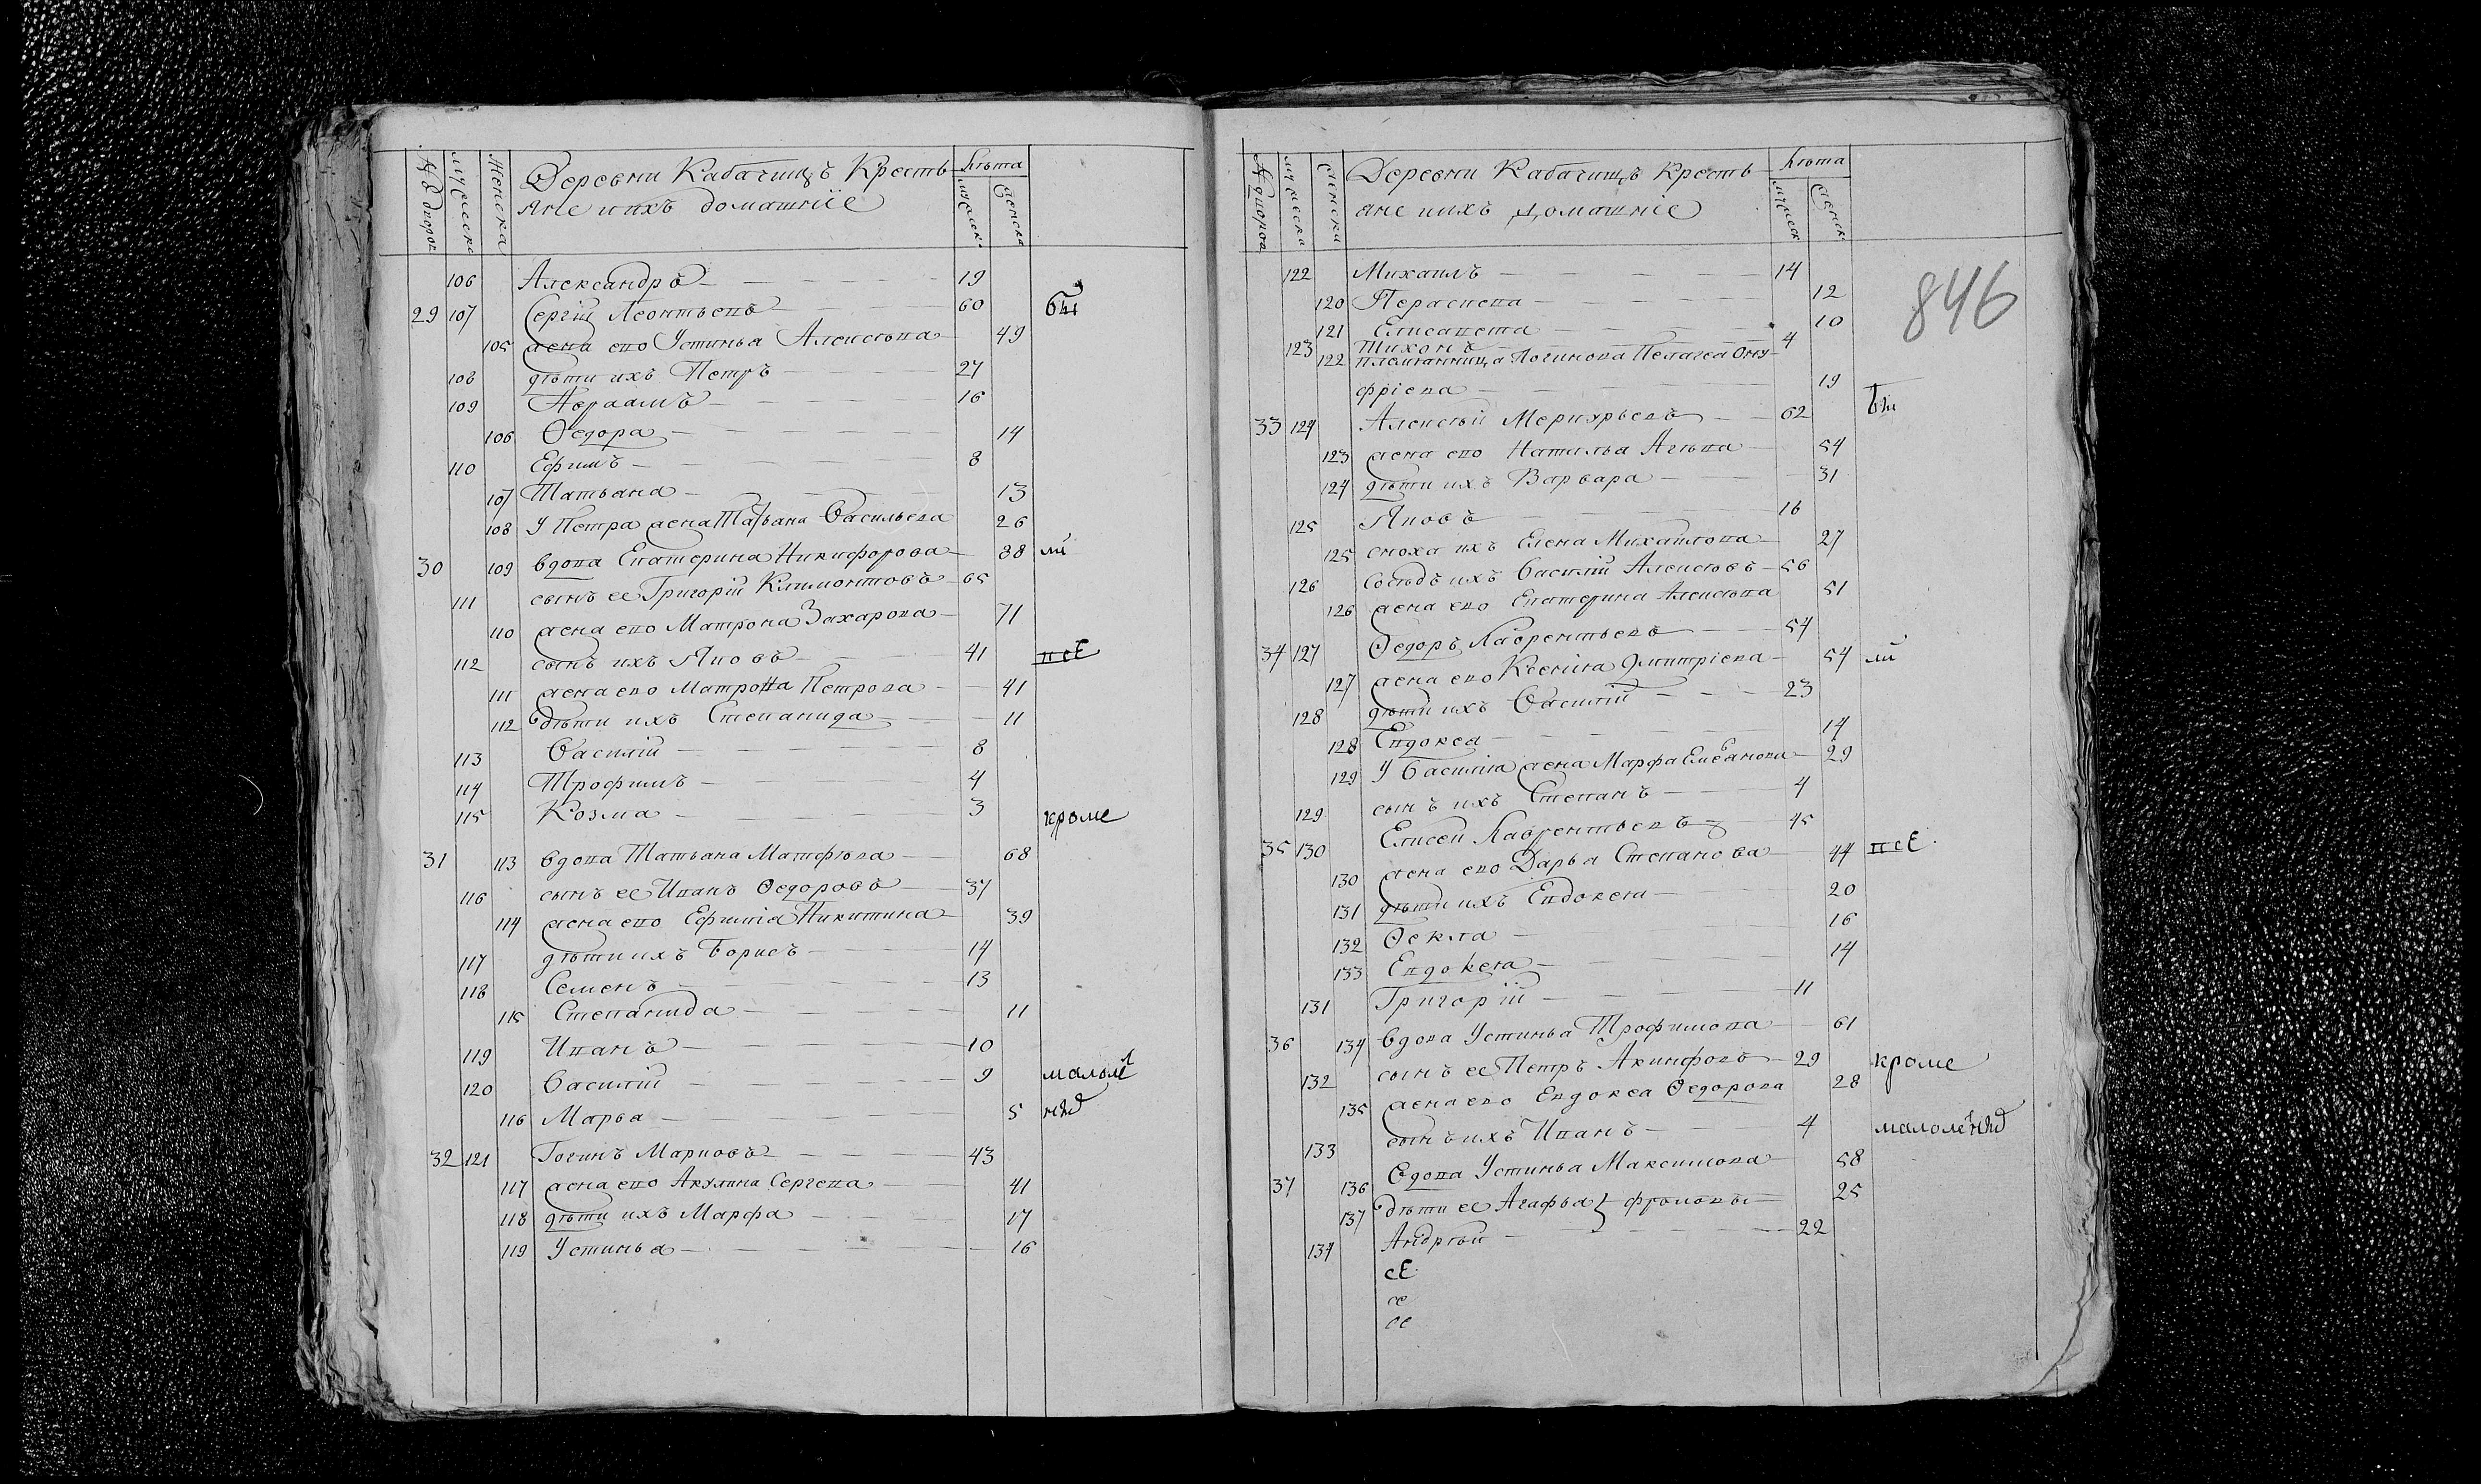 № дворов
мужеска
женска
Деревни Кабачищъ Кресть
яне ихъ домашніе
Лѣта
мужеск
женска
106 Александръ 19
29 107 Сергій Леонтьевъ 60 бы
105 жена ево Устинья Алексѣева 49
108 дѣти ихъ Петръ 27
109 Авраамъ 16
106 Ѳедора 14
110 Ефимъ 8
107 Татьяна 13
108 У Петра жена Татьяна Васильева 26
30 109 вдова Екатерина Никифорова 88 ли
111 сынъ ее Григорій Климонтовъ 65
110 жена ево Матрона Захарова 71
112 сынъ ихъ Яковъ 41 всЕ
111 жена ево Матрона Петрова 41
112 дѣти ихъ Степанида 11
113 Василій 8
114 Трофимъ 4
115 Козма 3 кроме
31 113 вдова Татьяна Матфѣева 68
116 сынъ ее Иванъ Ѳедоровъ 37
114 жена ево Ефимія Никитина 39
117 дѣти ихъ Борисъ 14
118 Семенъ 13
115 Степанида 11
119 Иванъ 10
120 Василій 9 малолѣ
116 Марья 5
32 121 Логинъ Марковъ 43
117 жена ево Акулина Сергева 41
118 дѣти ихъ Марфа 17
119 Устинья 16
№ дворов
мужеска
женска
Деревни Кабачищъ Кресть
яне ихъ домашніе
Лѣта
мужеск
женск
846
122 Михаилъ 14
120 Парасковя 12
121 Елисавета 10
123 Тихонъ 4
122 племянница Логинова Пелагея Ону
фріева 19
33 124 Алексѣй Меркурьевъ 62 бы
123 жена ево Наталья 54
124 дѣти ихъ Варвара 31
125 Яковъ 16
125 сноха ихъ Елена Михаилова 27
126 Сосѣдъ ихъ Василій Алексѣевъ 56
126 жена ево Екатерина Алексѣева 51
34 127 Ѳедоръ Лаврентьевъ 54
127 жена ево Ксенія Дмитріева 54 ли
128 дѣти ихъ Василій 23
128 Евдокея 14
129 У Василія жена Марфа Емельянова 29
129 сынъ ихъ Степанъ 4
35 130 Елисей Лаврентьевъ 45
130 жена ево Дарья Степанова 44 всЕ
131 дѣти ихъ Евдокея 20
132 Ѳекла 16
133 Евдокея 14
131 Григорій 11
36 134 вдова Устинья Трофимова 61
132 сынъ ее Петръ Акинфовъ 29 кроме
135 жена ево Евдокея Ѳедорова 28
133 сынъ ихъ Иванъ 4
37 136 Вдова Устинья Максимова 58
137 дѣти ее Агафья } Фроловы 25
134 Андрѣй 22
сЕ
се
се